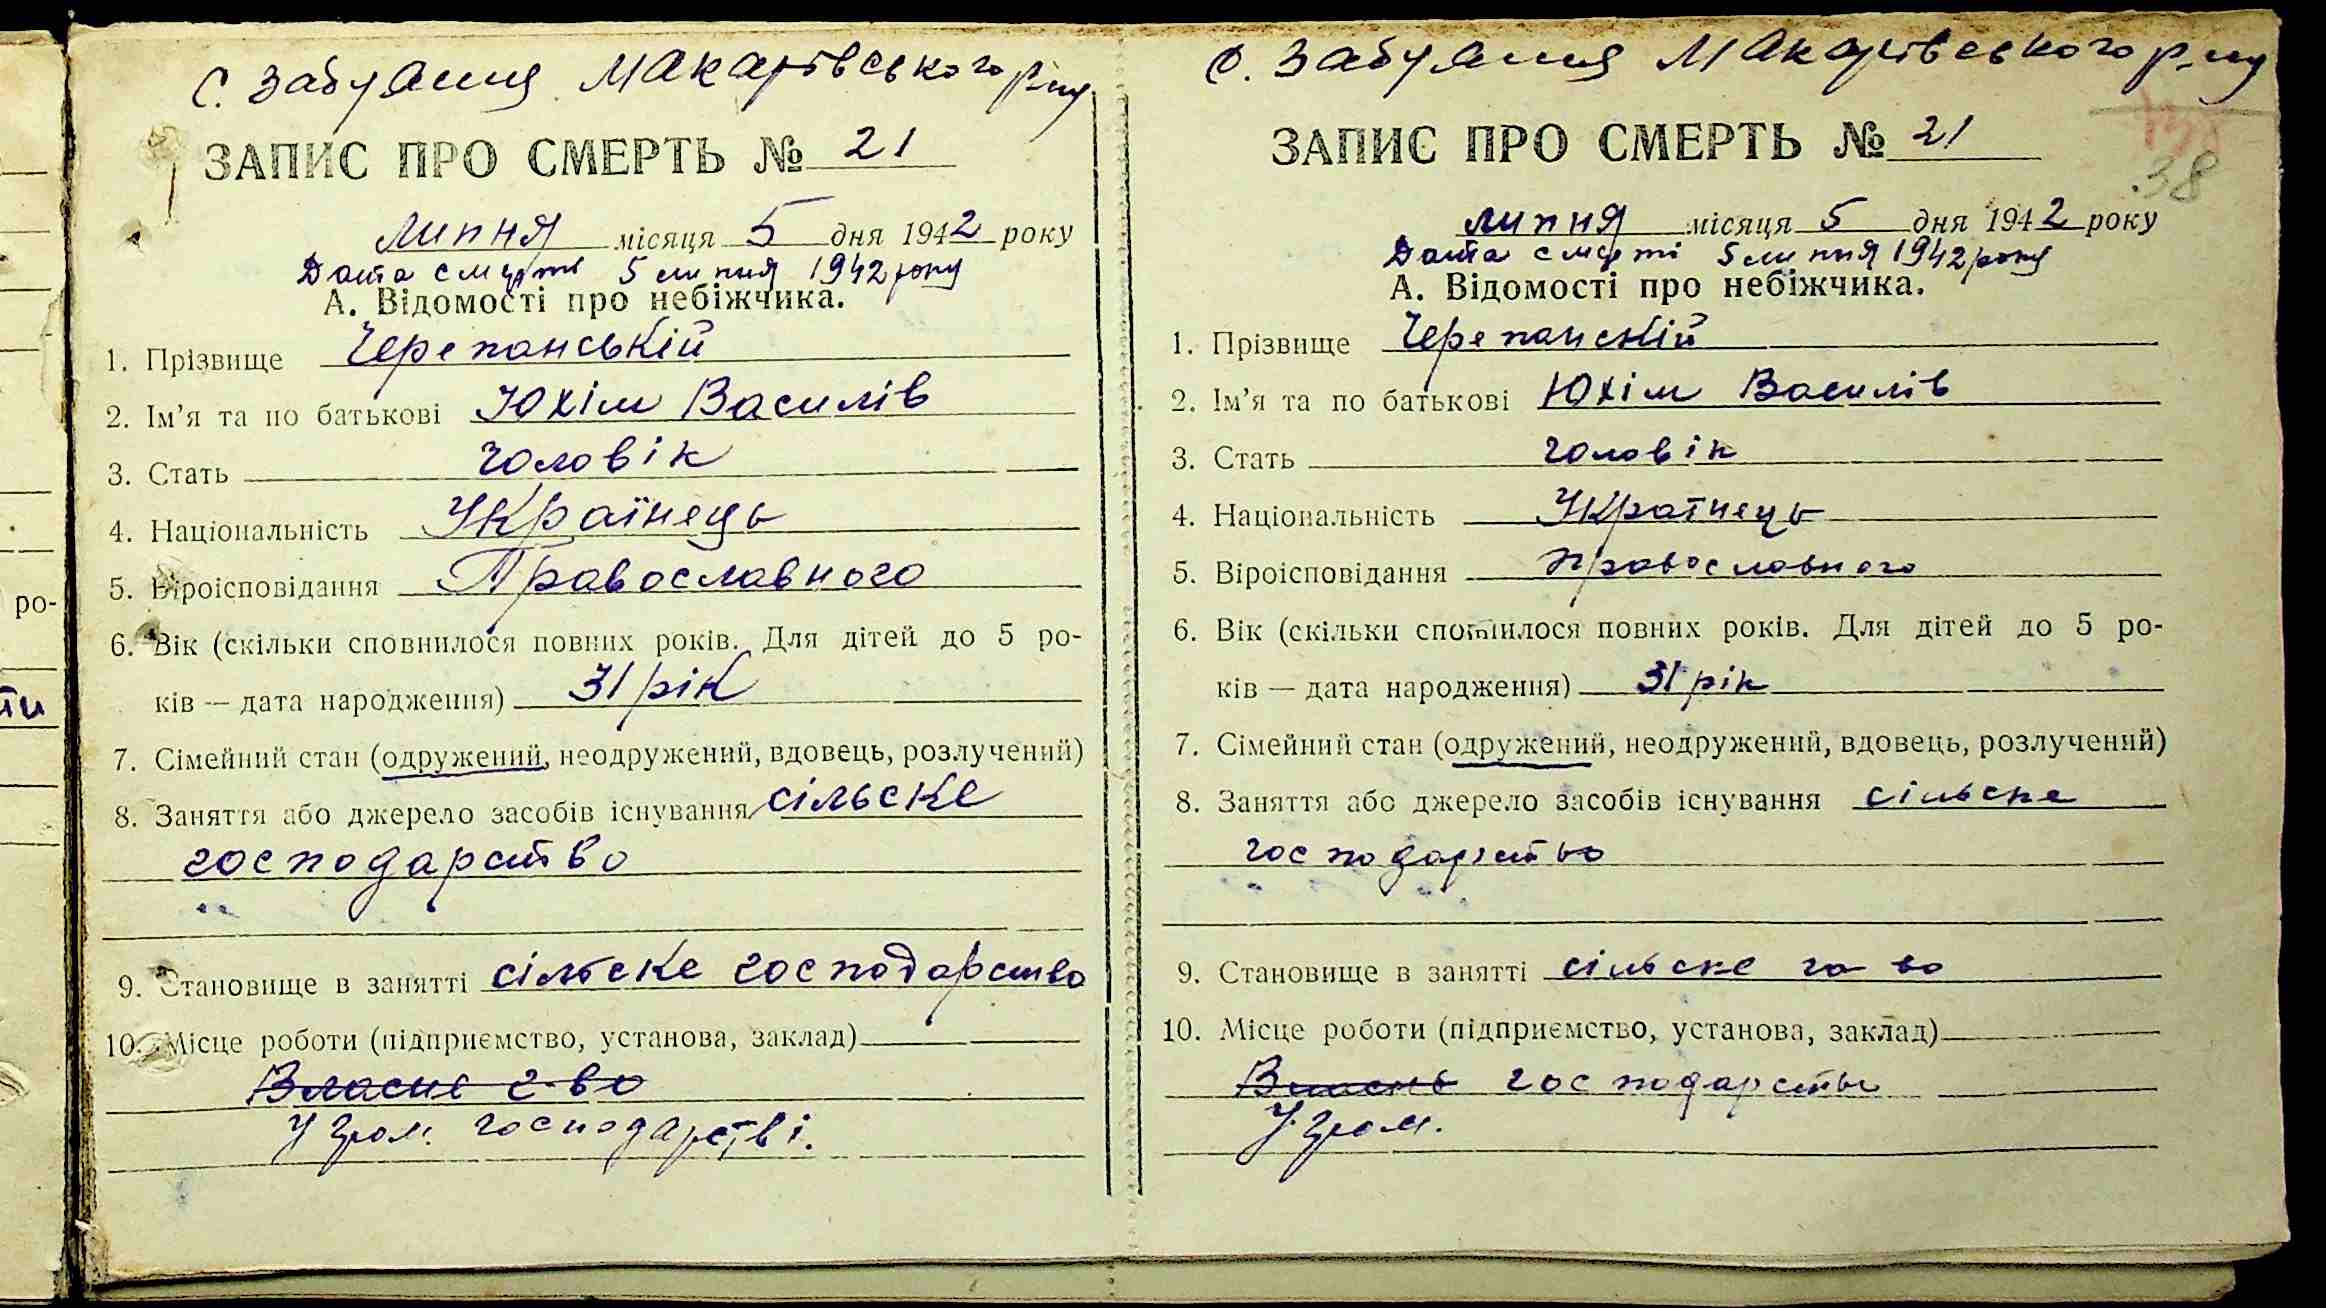 с. Забуяння Макарівського р-ну
ЗАПИС ПРО СМЕРТЬ № 21
липня місяця 5 дня 1942 року
Дата смерті 5 липня 1942 року
А. Відомості про небіжчика.
1. Прізвище Черепанській
2. Ім'я та по батькові Юхім Василів
3. Стать чоловік
4. Національність Українець
5. Віроісповідання Православного
6. Вік (скільки сповнилося повних років. Для дітей до 5 ро-
ків — дата народження) 31 рік
7. Сімейний стан (одружений, неодружений, вдовець, розлучений)
8. Заняття або джерело засобів існування сільське
господарство
9. Становище в занятті сільське господарство
10. Місце роботи (підприємство, установа, заклад)
Власне г-во
У гром. господарстві.
с. Забуяння Макарівського р-ну
ЗАПИС ПРО СМЕРТЬ № 21
38
липня місяця 5 дня 1942 року
Дата смерті 5 липня 1942 року
А. Відомості про небіжчика.
1. Прізвище Черепанскій
2. Ім'я та по батькові Юхім Василів
3. Стать чоловік
4. Національність Українець
5. Віроісповідання православного
6. Вік (скільки сповнилося повних років. Для дітей до 5 ро-
ків — дата народження) 31 рік
7. Сімейний стан (одружений, неодружений, вдовець, розлучений)
8. Заняття або джерело засобів існування сільске
господарство
9. Становище в занятті сільске го-во
10. Місце роботи (підприємство, установа, заклад)
Власнь господарствы
У гром.
ро-
ти